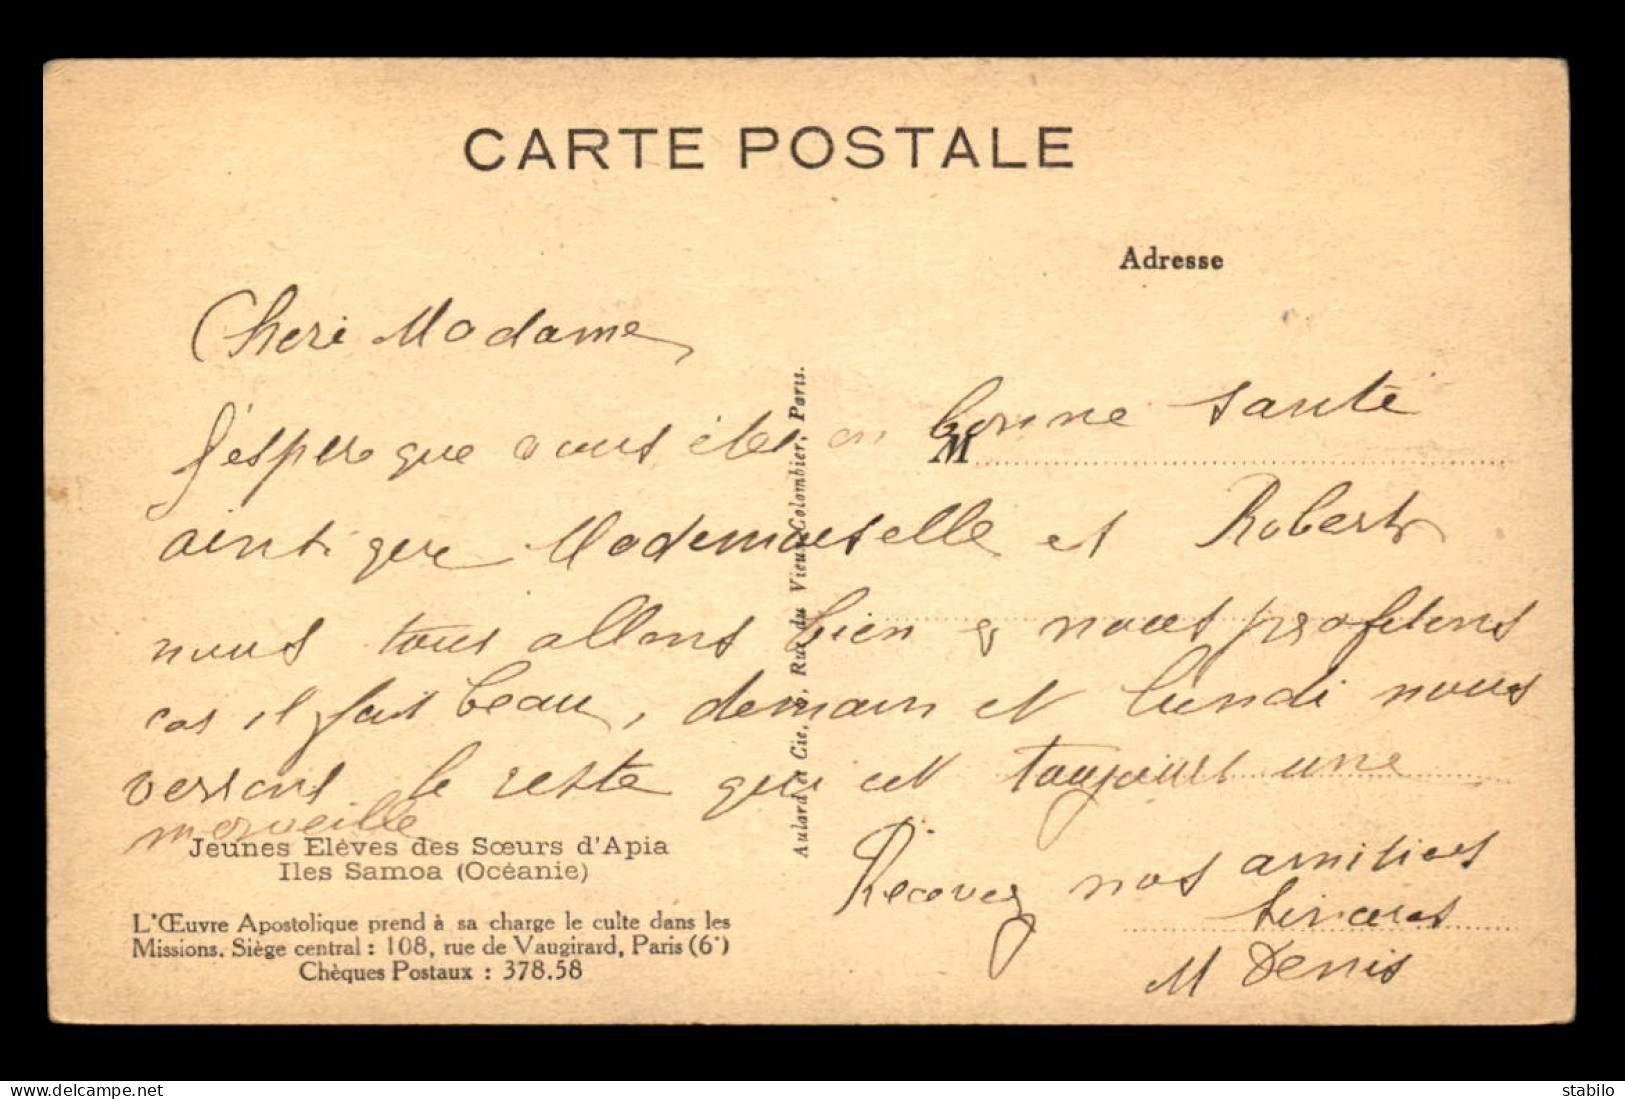 CARTE POSTALE
Adresse
Cheri Madame
J'espere que vous êtes en bonne santé
M
ainsi que Mademoiselle et Robert
nous tous allons bien & nous profitons
car il fait beau, demain et lundi nous
verrons le reste qui est toujours une
merveille
Recevez nos amitiés
sincères
M Denis
Jeunes Elèves des Sœurs d'Apia
Iles Samoa (Océanie)
L'Œuvre Apostolique prend à sa charge le culte dans les
Missions. Siège central : 108, rue de Vaugirard, Paris (6°)
Chèques Postaux : 378.58
Aulard et Cie, Rue du Vieux-Colombier, Paris.
https://www.delcampe.net
stabilo